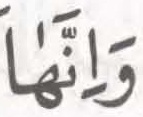 وَاِنَّهَا